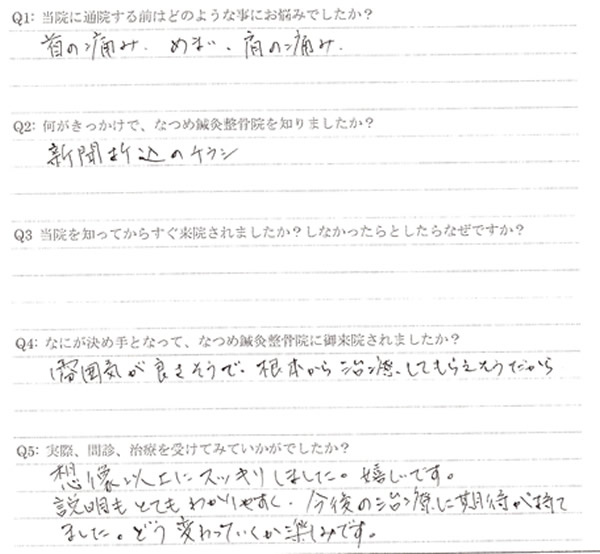 Q1: 当院に通院する前はどのような事にお悩みでしたか？
首の痛み. めまい. 肩の痛み.
Q2: 何がきっかけで、なつめ鍼灸整骨院を知りましたか？
新聞折込のチラシ
Q3 当院を知ってからすぐ来院されましたか？しなかったらとしたらなぜですか？
Q4: なにが決め手となって、なつめ鍼灸整骨院に御来院されましたか？
雰囲気が良さそうで、根本から治療してもらえそうだから
Q5: 実際、問診、治療を受けてみていかがでしたか？
想像以上にスッキリしました。嬉しいです。
説明もとてもわかりやすく、今後の治療に期待が持て
ました。どう変わっていくか楽しみです。